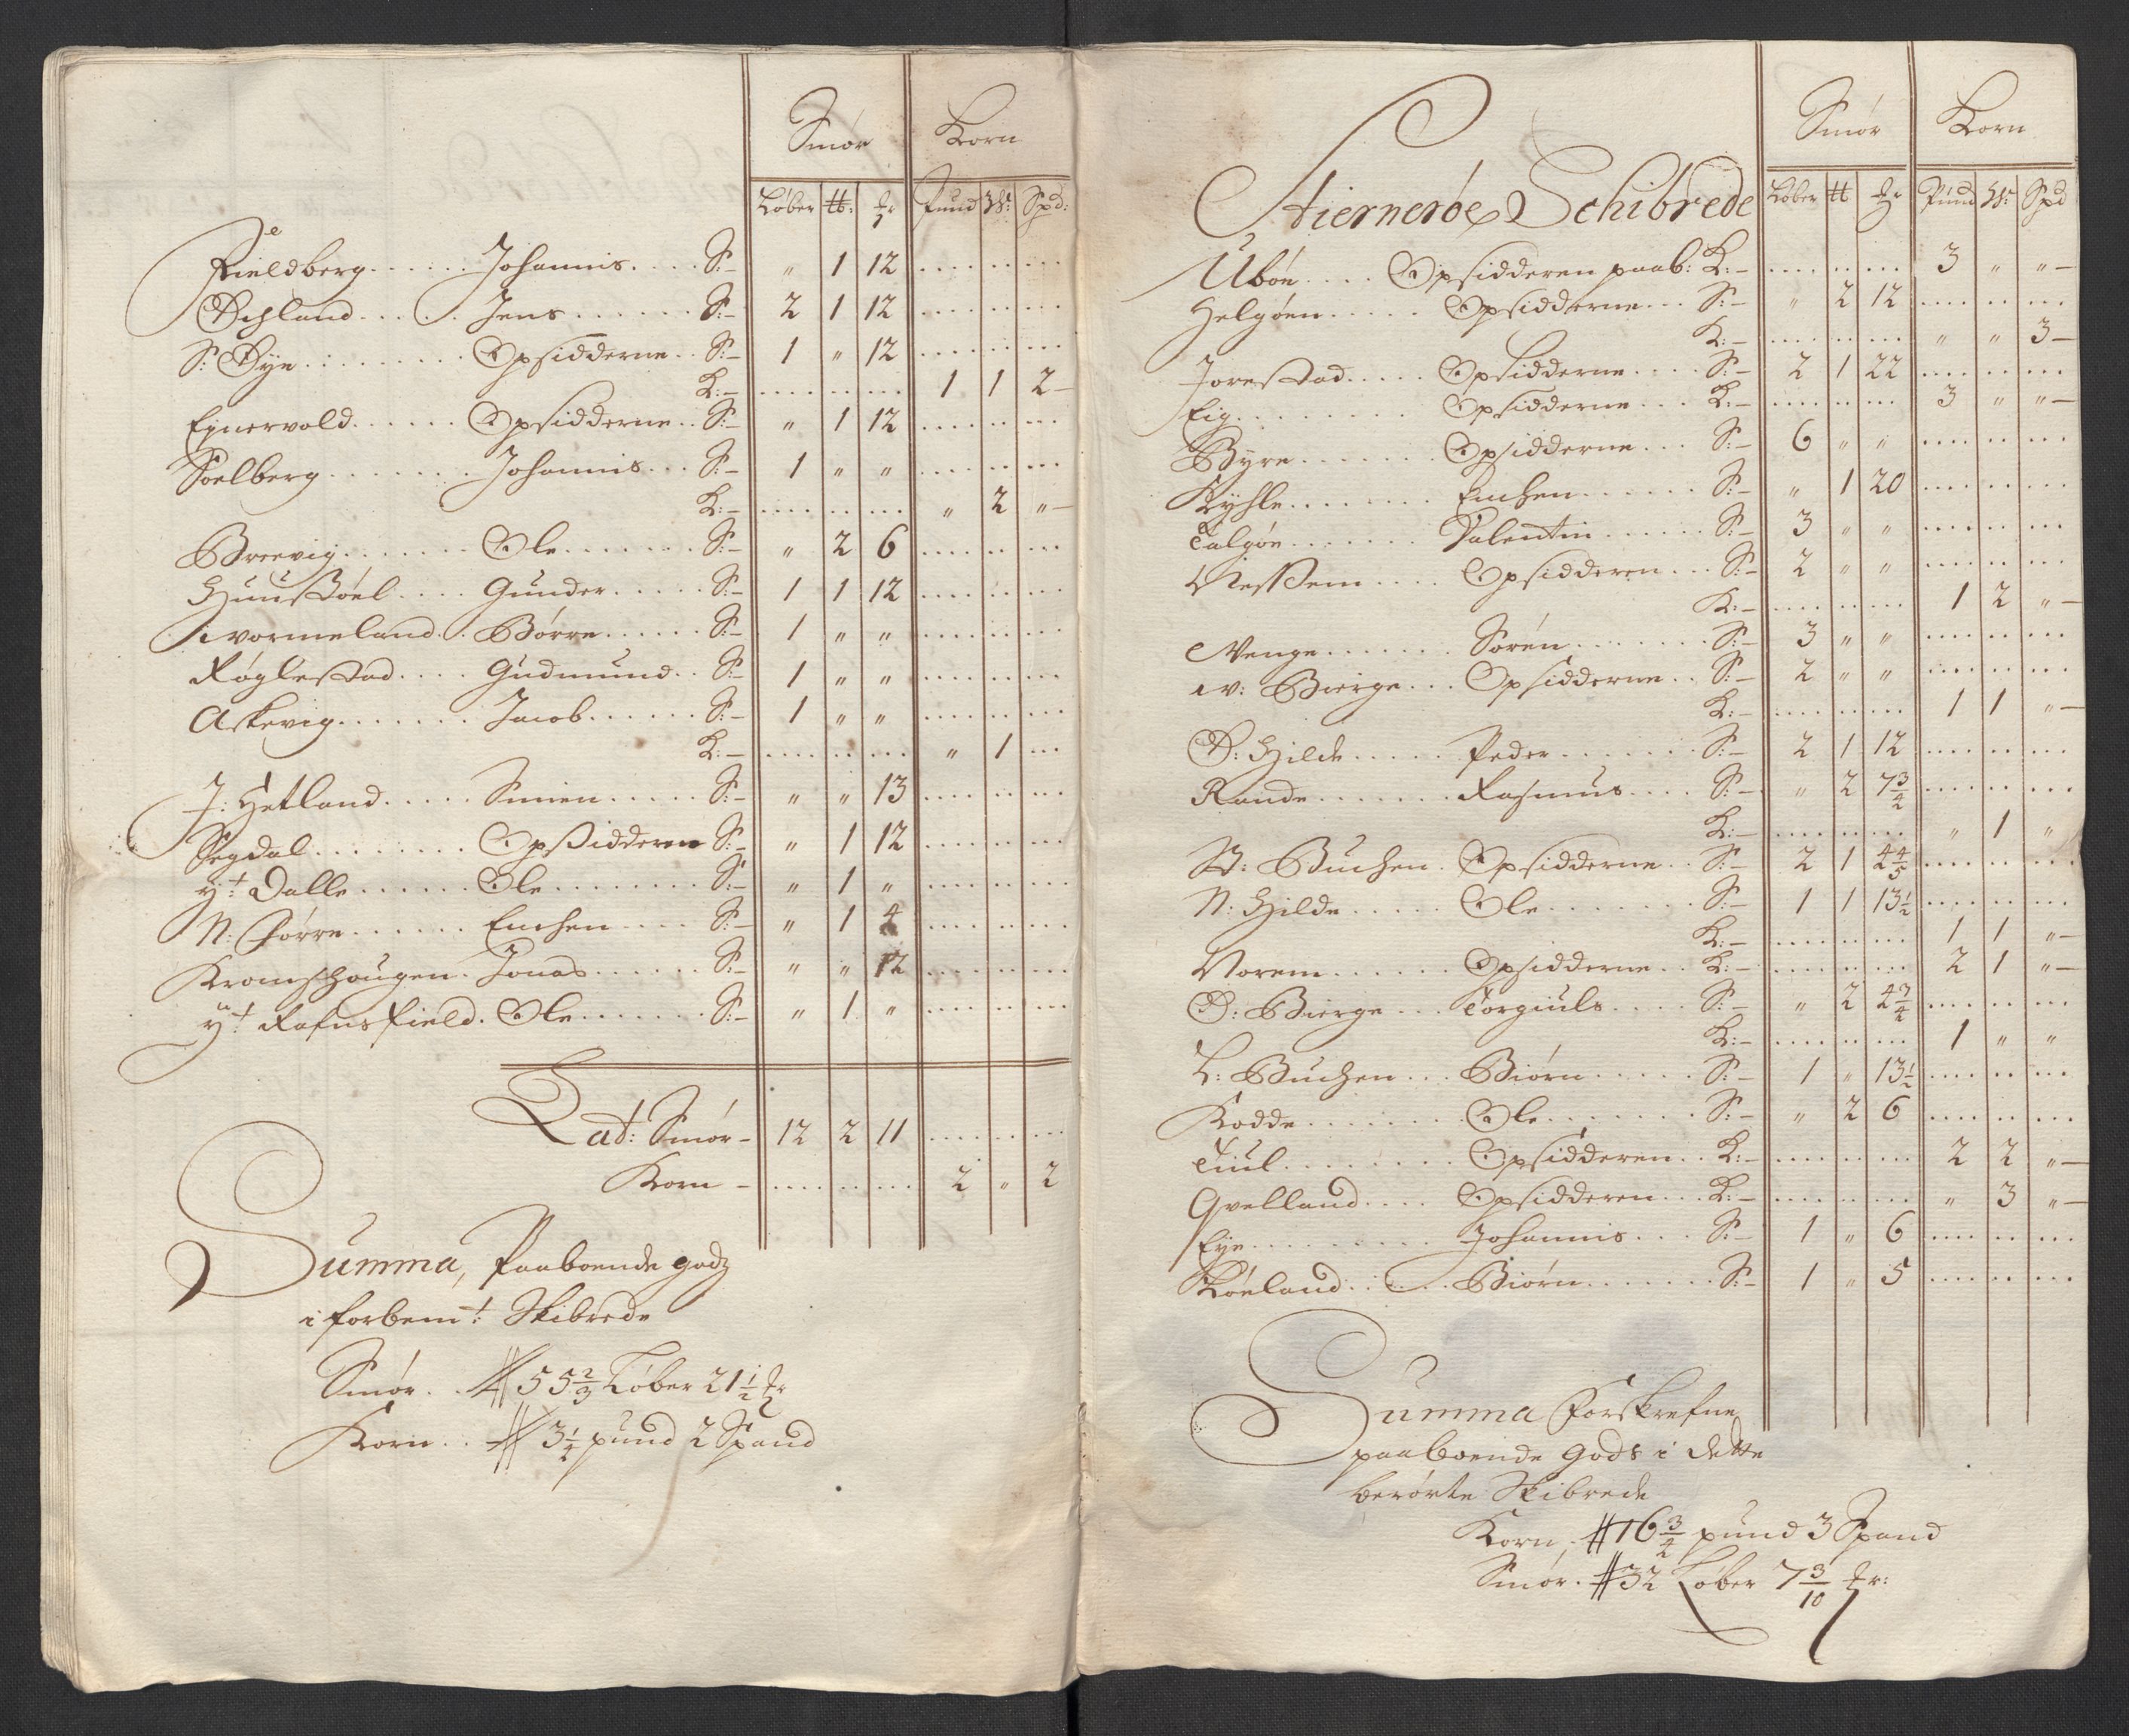 Smør Korn
Løber ℔: ℥r Pund Wr: Spd:
Fieldberg Johannis S:- " 1 12
Øchland Jens S:- 2 1 12
S: Øye Opsidderne S:- 1 " 12
K:- 1 1 2-
Ejnervold Opsidderne S:- " 1 12
Soelberg Johannis S:- 1 " "
K:- " 2 "-
Breevig Ole S:- " 2 6
Huusstöel Gunder S:- 1 1 12
wormeland Børre S:- 1 " "
Røglestad Gudmund S:- 1 " "
Askevig Jacob S:- 1 " "
K:- " 1
J: Hetland Simen S:- " " 13
Segdal Opsidderen S:- " 1 12
yt: Dalle Ole S:- " 1 "
N: Førre Enchen S:- " 1 4
Kromshougen Jonas S:- " " 12
yt: Rafnsfield Ole S:- " 1 "
Lat: Smør- 12 2 11
Korn- 2 " 2
Summa, Paaboende godz
i forbemt: Skibrede
Smør # 55 2/3 Løber 21 1/2 ℥r
Korn # 3 1/4 pund 2 Spand
Smør Korn
Hiernerøe Schibrede Løber ℔ ℥r Pund Wr: Spd
Ubøe Opsidderen paab: K:- 3 " "-
Helgøen Opsidderne S:- " 2 12
K:- " " 3-
Jorestad Opsidderne S:- 2 1 22
Eig Opsidderne K:- 3 " "-
Byre Opsidderne S:- 6 " "
Kyhle Enchen S:- " 1 20
Talgøe Valentin S:- 3 " "
Nessem Opsidderen S:- 2 " "
K:- 1 2 "-
Venge Sørén S:- 3 " "
w: Bierge Opsidderne S:- 2 " "
K:- 1 1 "-
Ø: Hilde Peder S:- 2 1 12
Rande Rasmus S:- " 2 7 3/4
K:- " 1 "
St: Buchen Opsidderne S:- 2 1 4 4/5
N: Hilde Ole S:- 1 1 13 1/2
K:- 1 1 "-
Vorem Opsidderne K:- 2 1 "-
Ø: Bierge Torgiuls S:- " 2 4 3/4
K:- 1 " "
L: Buchen Biørn S:- 1 " 13 1/2
Kodde Ole S:- " 2 6
Tiul Opsidderen K:- 2 2 "-
Qvelland Opsidderen K:- " 3 "-
Eye Johannis S:- 1 " 6
Røeland Biørn S:- 1 " 5
Summa Forskrefne
paaboende Gods i dette
berørte Skibrede
Korn, # 16 3/4 pund 3 Spand
Smør. # 32 Løber 7 3/10 ℥r: